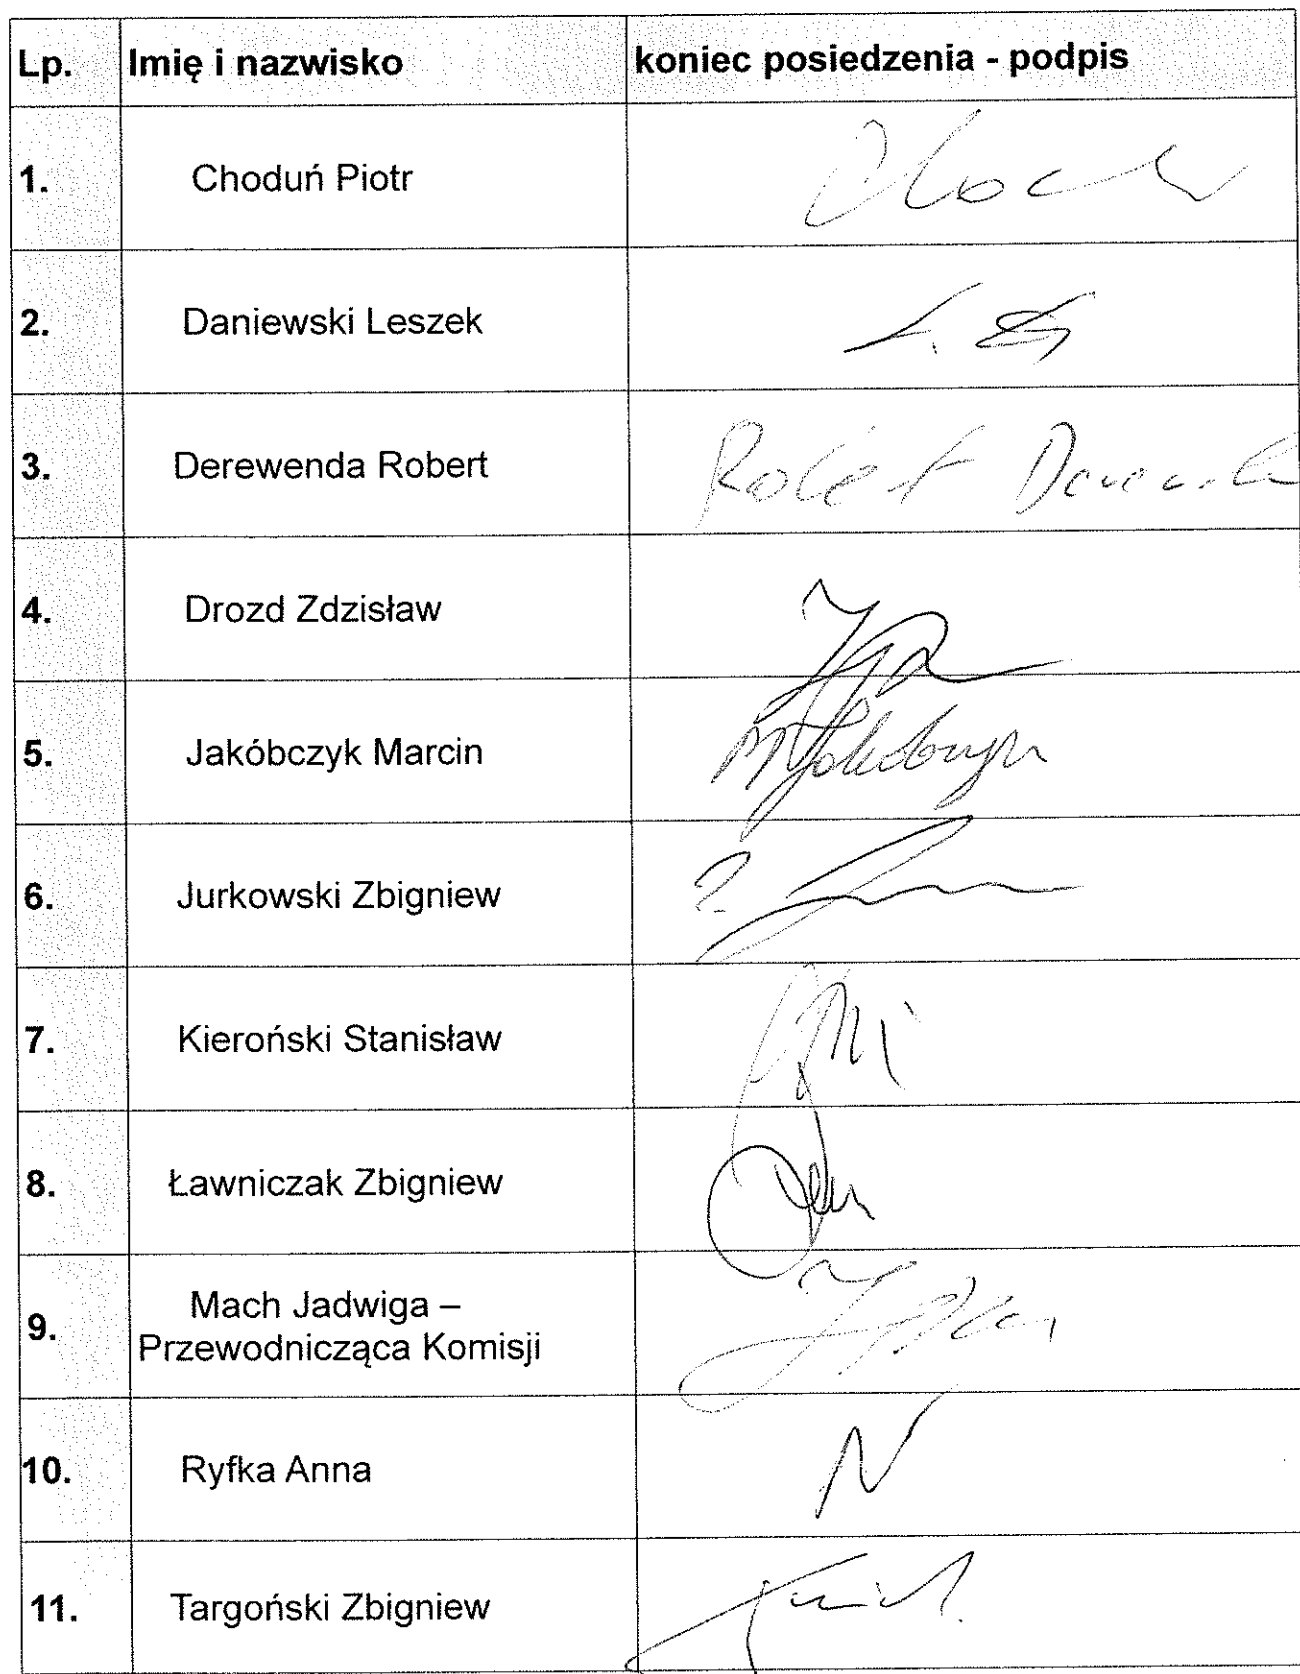 Lp. Imię i nazwisko koniec posiedzenia - podpis
1. Choduń Piotr
2. Daniewski Leszek
3. Derewenda Robert Robert
4. Drozd Zdzisław
5. Jakóbczyk Marcin
6. Jurkowski Zbigniew
7. Kieroński Stanisław
8. Ławniczak Zbigniew
9. Mach Jadwiga –
Przewodnicząca Komisji
10. Ryfka Anna
11. Targoński Zbigniew